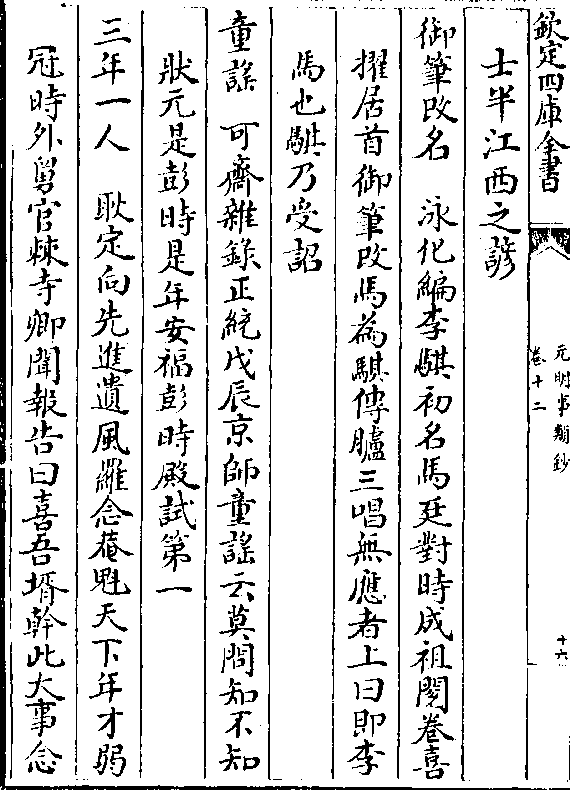 欽定四庫全書
元明事類鈔
卷十二
十六
士半江西之諺
御筆改名　泳化編李騏初名馬廷對時成祖閱卷喜
擢居首御筆改馬為騏傳臚三唱無應者上曰即李
馬也騏乃受詔
童謠　可齋雜錄正統戊辰京師童謠云莫問知不知
狀元是彭時是年安福彭時殿試第一
三年一人　耿定向先進遺風羅念菴魁天下年才弱
冠時外舅官棘寺卿聞報告曰喜吾壻幹此大事念